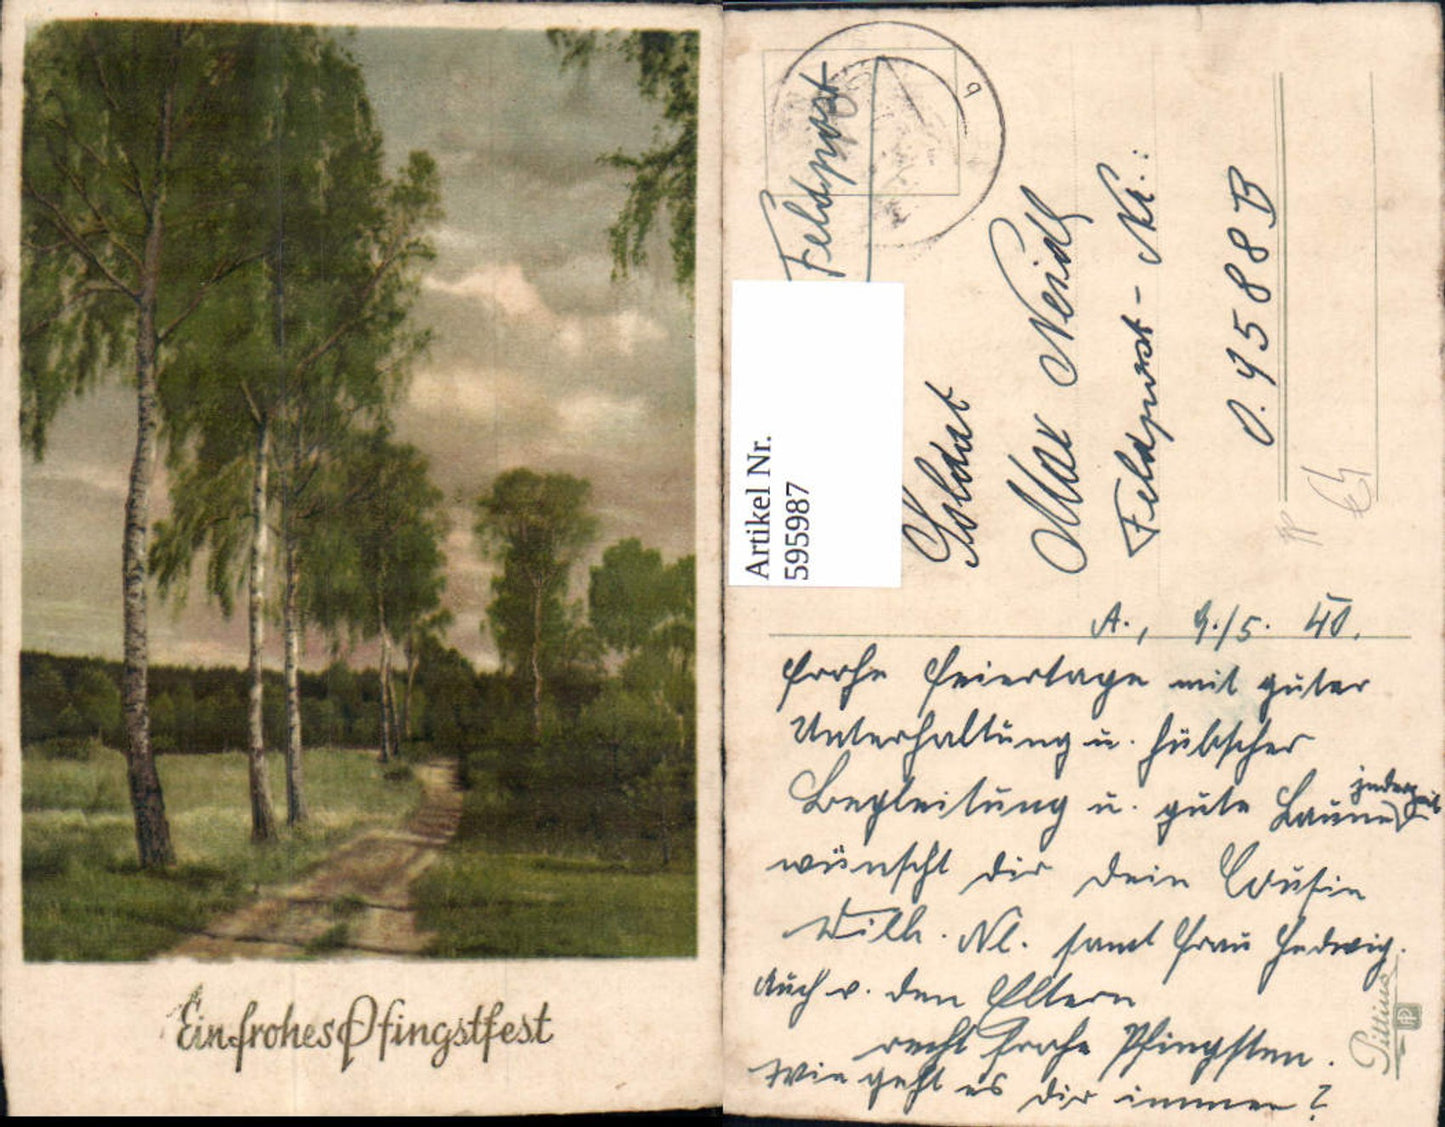 Ein frohes Pfingstfest
Feldpost
Artikel Nr.
595987
Soldat
Max Neidl
Feldpost-Nr.:
0.9588B
A., 9./5. 40.
Frohe Feiertage mit guter
Unterhaltung u. hübscher
Begleitung u. gute Laune jederzeit
wünscht dir dein Cousin
Wilh. Nl. samt Frau Hedwig.
Auch v. den Eltern
recht frohe Pfingsten.
Wie geht es dir immer?
Pittius